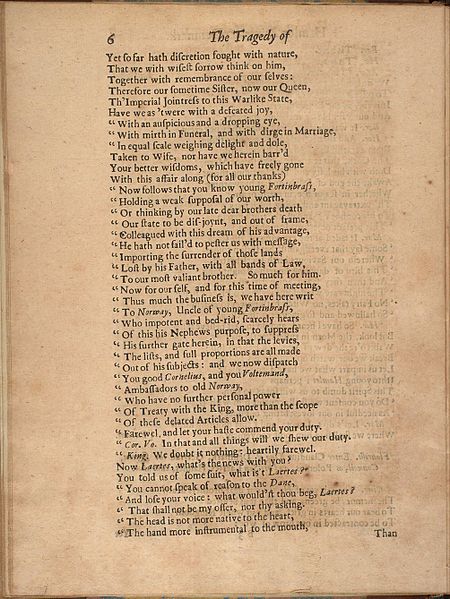 6 The Tragedy of
Yet so far hath discretion fought with nature,
That we with wisest sorrow think on him,
Together with remembrance of our selves:
Therefore our sometime Sister, now our Queen,
Th'Imperial Jointress to this Warlike State,
Have we as 'twere with a defeated joy,
“ With an auspicious and a dropping eye,
“ With mirth in Funeral, and with dirge in Marriage,
“ In equal scale weighing delight and dole,
Taken to Wife, nor have we herein barr'd
Your better wisdoms, which have freely gone
With this affair along (for all our thanks)
“ Now follows that you know young Fortinbrass,
“ Holding a weak supposal of our worth,
“ Or thinking by our late dear brothers death
“ Our state to be dis-joynt, and out of frame,
“ Colleagued with this dream of his advantage,
“ He hath not fail'd to pester us with message,
“ Importing the surrender of those lands
“ Lost by his Father, with all bands of Law,
“ To our most valiant brother. So much for him.
“ Now for our self, and for this time of meeting,
“ Thus much the business is, we have here writ
“ To Norway, Uncle of young Fortinbrass,
“ Who impotent and bed-rid, scarcely hears
“ Of this his Nephews purpose, to suppress
“ His further gate herein, in that the levies,
“ The lists, and full proportions are all made
“ Out of his subjects: and we now dispatch
“ You good Cornelius, and you Voltemand,
“ Ambassadors to old Norway,
“ Who have no further personal power
“ Of Treaty with the King, more than the scope
“ Of these delated Articles allow.
“ Farewel, and let your haste commend your duty.
“ Cor. Vo. In that and all things will we shew our duty.
“ King. We doubt it nothing: heartily farewel.
Now Laertes, what's the news with you?
You told us of some suit, what is't Laertes?
“ You cannot speak of reason to the Dane,
“ And lose your voice: what would'st thou beg, Laertes?
“ That shall not be my offer, nor thy asking.
“ The head is not more native to the heart,
“ The hand more instrumental to the mouth,
Than